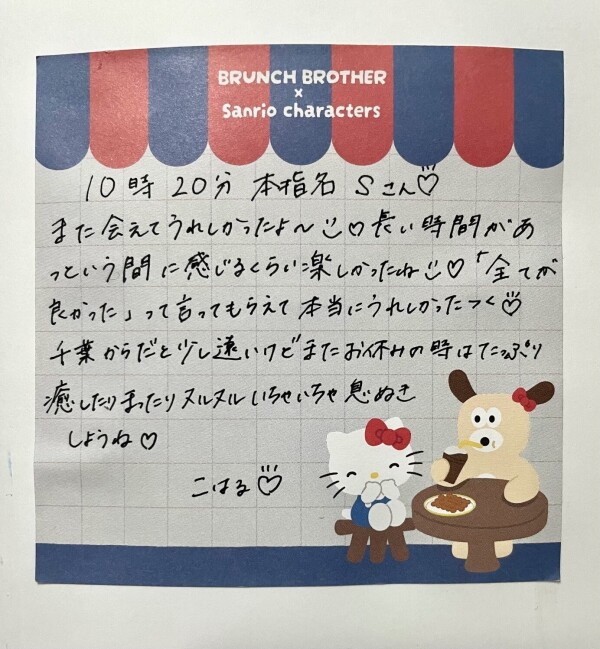 BRUNCH BROTHER
×
Sanrio characters
10時 20分 本指名 Sさん♡
また会えてうれしかったよ〜♡長い時間があ
っという間に感じるくらい楽しかったね♡「全てが
良かった」って言ってもらえて本当にうれしかったっく♡
千葉からだと少し遠いけどまたお休みの時はたっぷり
癒したりまったりヌルヌルいちゃいちゃ息ぬき
しようね♡
こはる♡